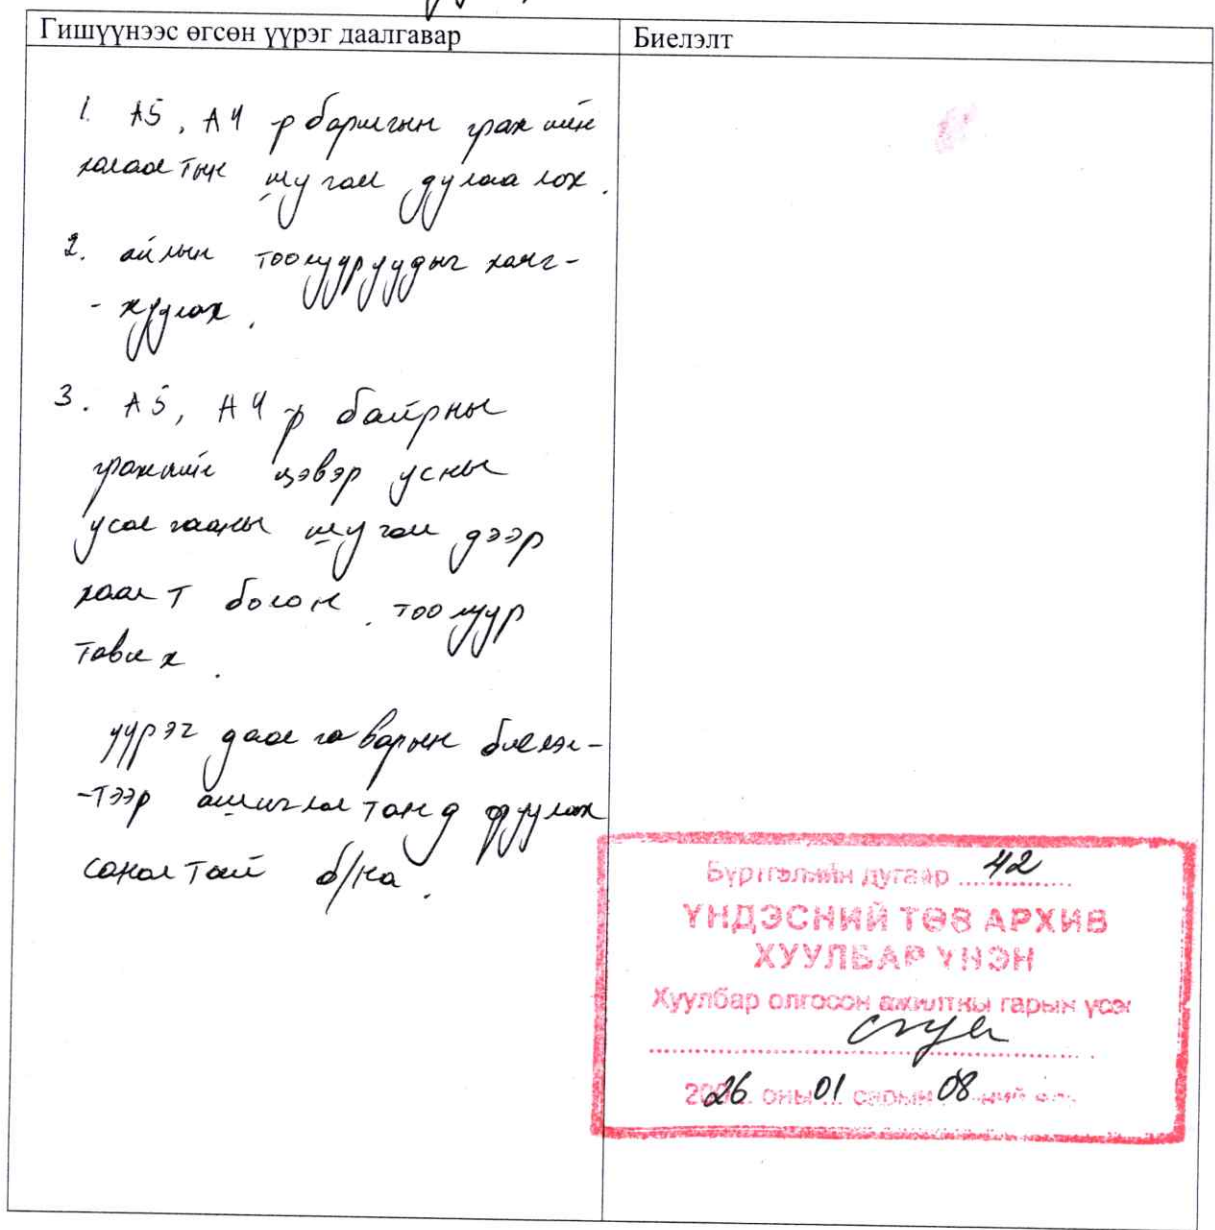 Гишүүнээс өгсөн үүрэг даалгавар
Биелэлт
1. А5, А4 р баригын граж ийн
халаалтын шугам дулаалах.
2. айлын тоолууруудыг ханг-
- жуулах.
3. А5, А4-р байрны
гражийн цэвэр усны
усалгааны шугам дээр
хаалт болон тоолуур
тавих.
үүрэг даалгаварын биелэл-
-тээр ашиглалтанд оруулах
саналтай б/на.
Бүртгэлийн дугаар 42
ҮНДЭСНИЙ ТӨВ АРХИВ
ХУУЛБАР ҮНЭН
Хуулбар олгосон ажилтны гарын үсэг
2026 оны 01 сарын 08-ний